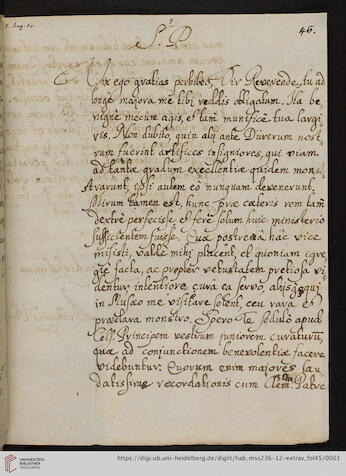 46.
S. P.
Vix ego gratias perhibeo, Vir Reverende, tu ad
longe majora me tibi reddis obligatum. Ita be
nigne mecum agis, et tam munifice tua largi
ris. Non dubito, quin alij ante Dürerum nost
rum fuerint artifices insigniores, qui viam
ad tantae gradum excellentiae quidem mon
strarunt, ipsi autem eo nunquam devenerunt.
Mirum tamen est, hunc prae caeteris rem tam
dextre perfecisse, et fere solum huic ministerio
sufficientem fuisse. Quae postrema hac vice
misisti, valde mihi placent, et quoniam egre
gie facta, ac propter vetustatem pretiosa vi
dentur, intentiore cura ea servo, alijsque qui
in Museo me visitare solent, ceu rara et
praeclara monstro. Spero Te sedulo apud
Cels. Principem vestrum juniorem curaturum,
quae ad conjunctionem benevolentiae facere
videbuntur. Quorum enim majores lau
datissimae recordationis cum Clem. Patre
UNIVERSITÄTS-
BIBLIOTHEK
HEIDELBERG
https://digi.ub.uni-heidelberg.de/diglit/hab_mss236-12-extrav_fol45/0001